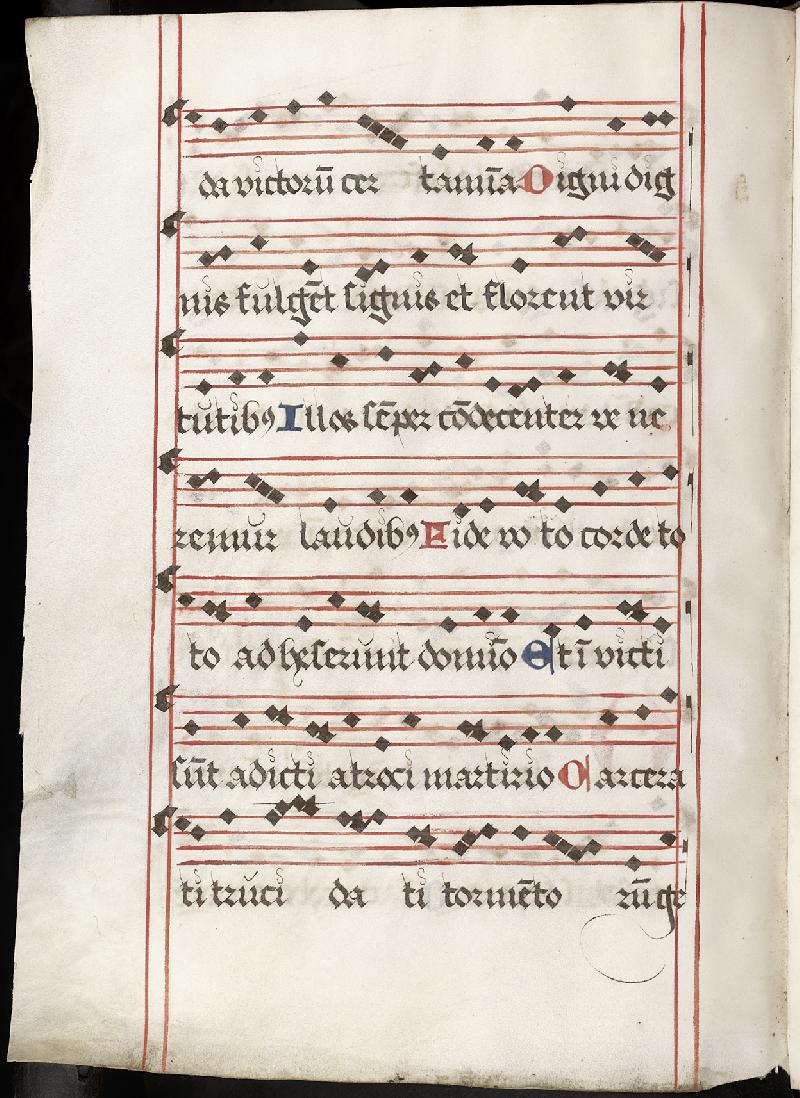 da victorū cer tamīa Digni dig
nis fulgēt signis et florent vir
tutibꝰ Illos sēper cōdecenter ve ne
remur laudibꝰ Fide vo to corde to
to adheserunt domīo Et ī victi
sūt adicti atroci martirio Carcera
ti truci da ti tormēto rū ge